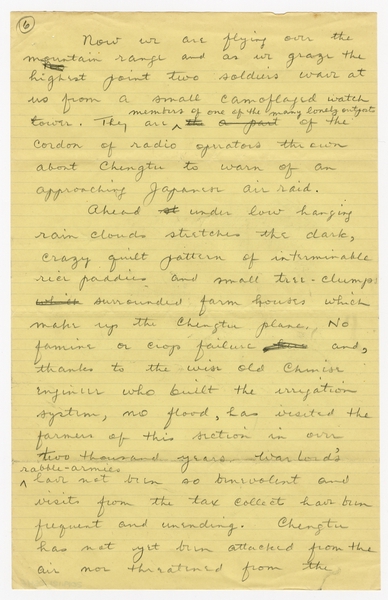 6
Now we are flying over the
mountain range and as we graze the
highest point two soldiers wave at
us from a small camoflaged watch
members of one of the many lonely outposts
tower. They are of the
cordon of radio operators thrown
about Chengtu to warn of an
approaching Japanese air raid.
Ahead under low hanging
rain clouds stretches the dark,
crazy quilt pattern of interminable
rice paddies and small tree-clump
surrounded farm houses which
make up the Chengtu plane. No
famine or crop failure and,
thanks to the wise old Chinese
Engineer who built the irrigation
system, no flood, has visited the
farmers of this section in over
two thousand years. Warlord's
rabble-armies
have not been so benevolent and
visits from the tax collect have been
frequent and unending. Chengtu
has not yet been attacked from the
air nor threatened from the